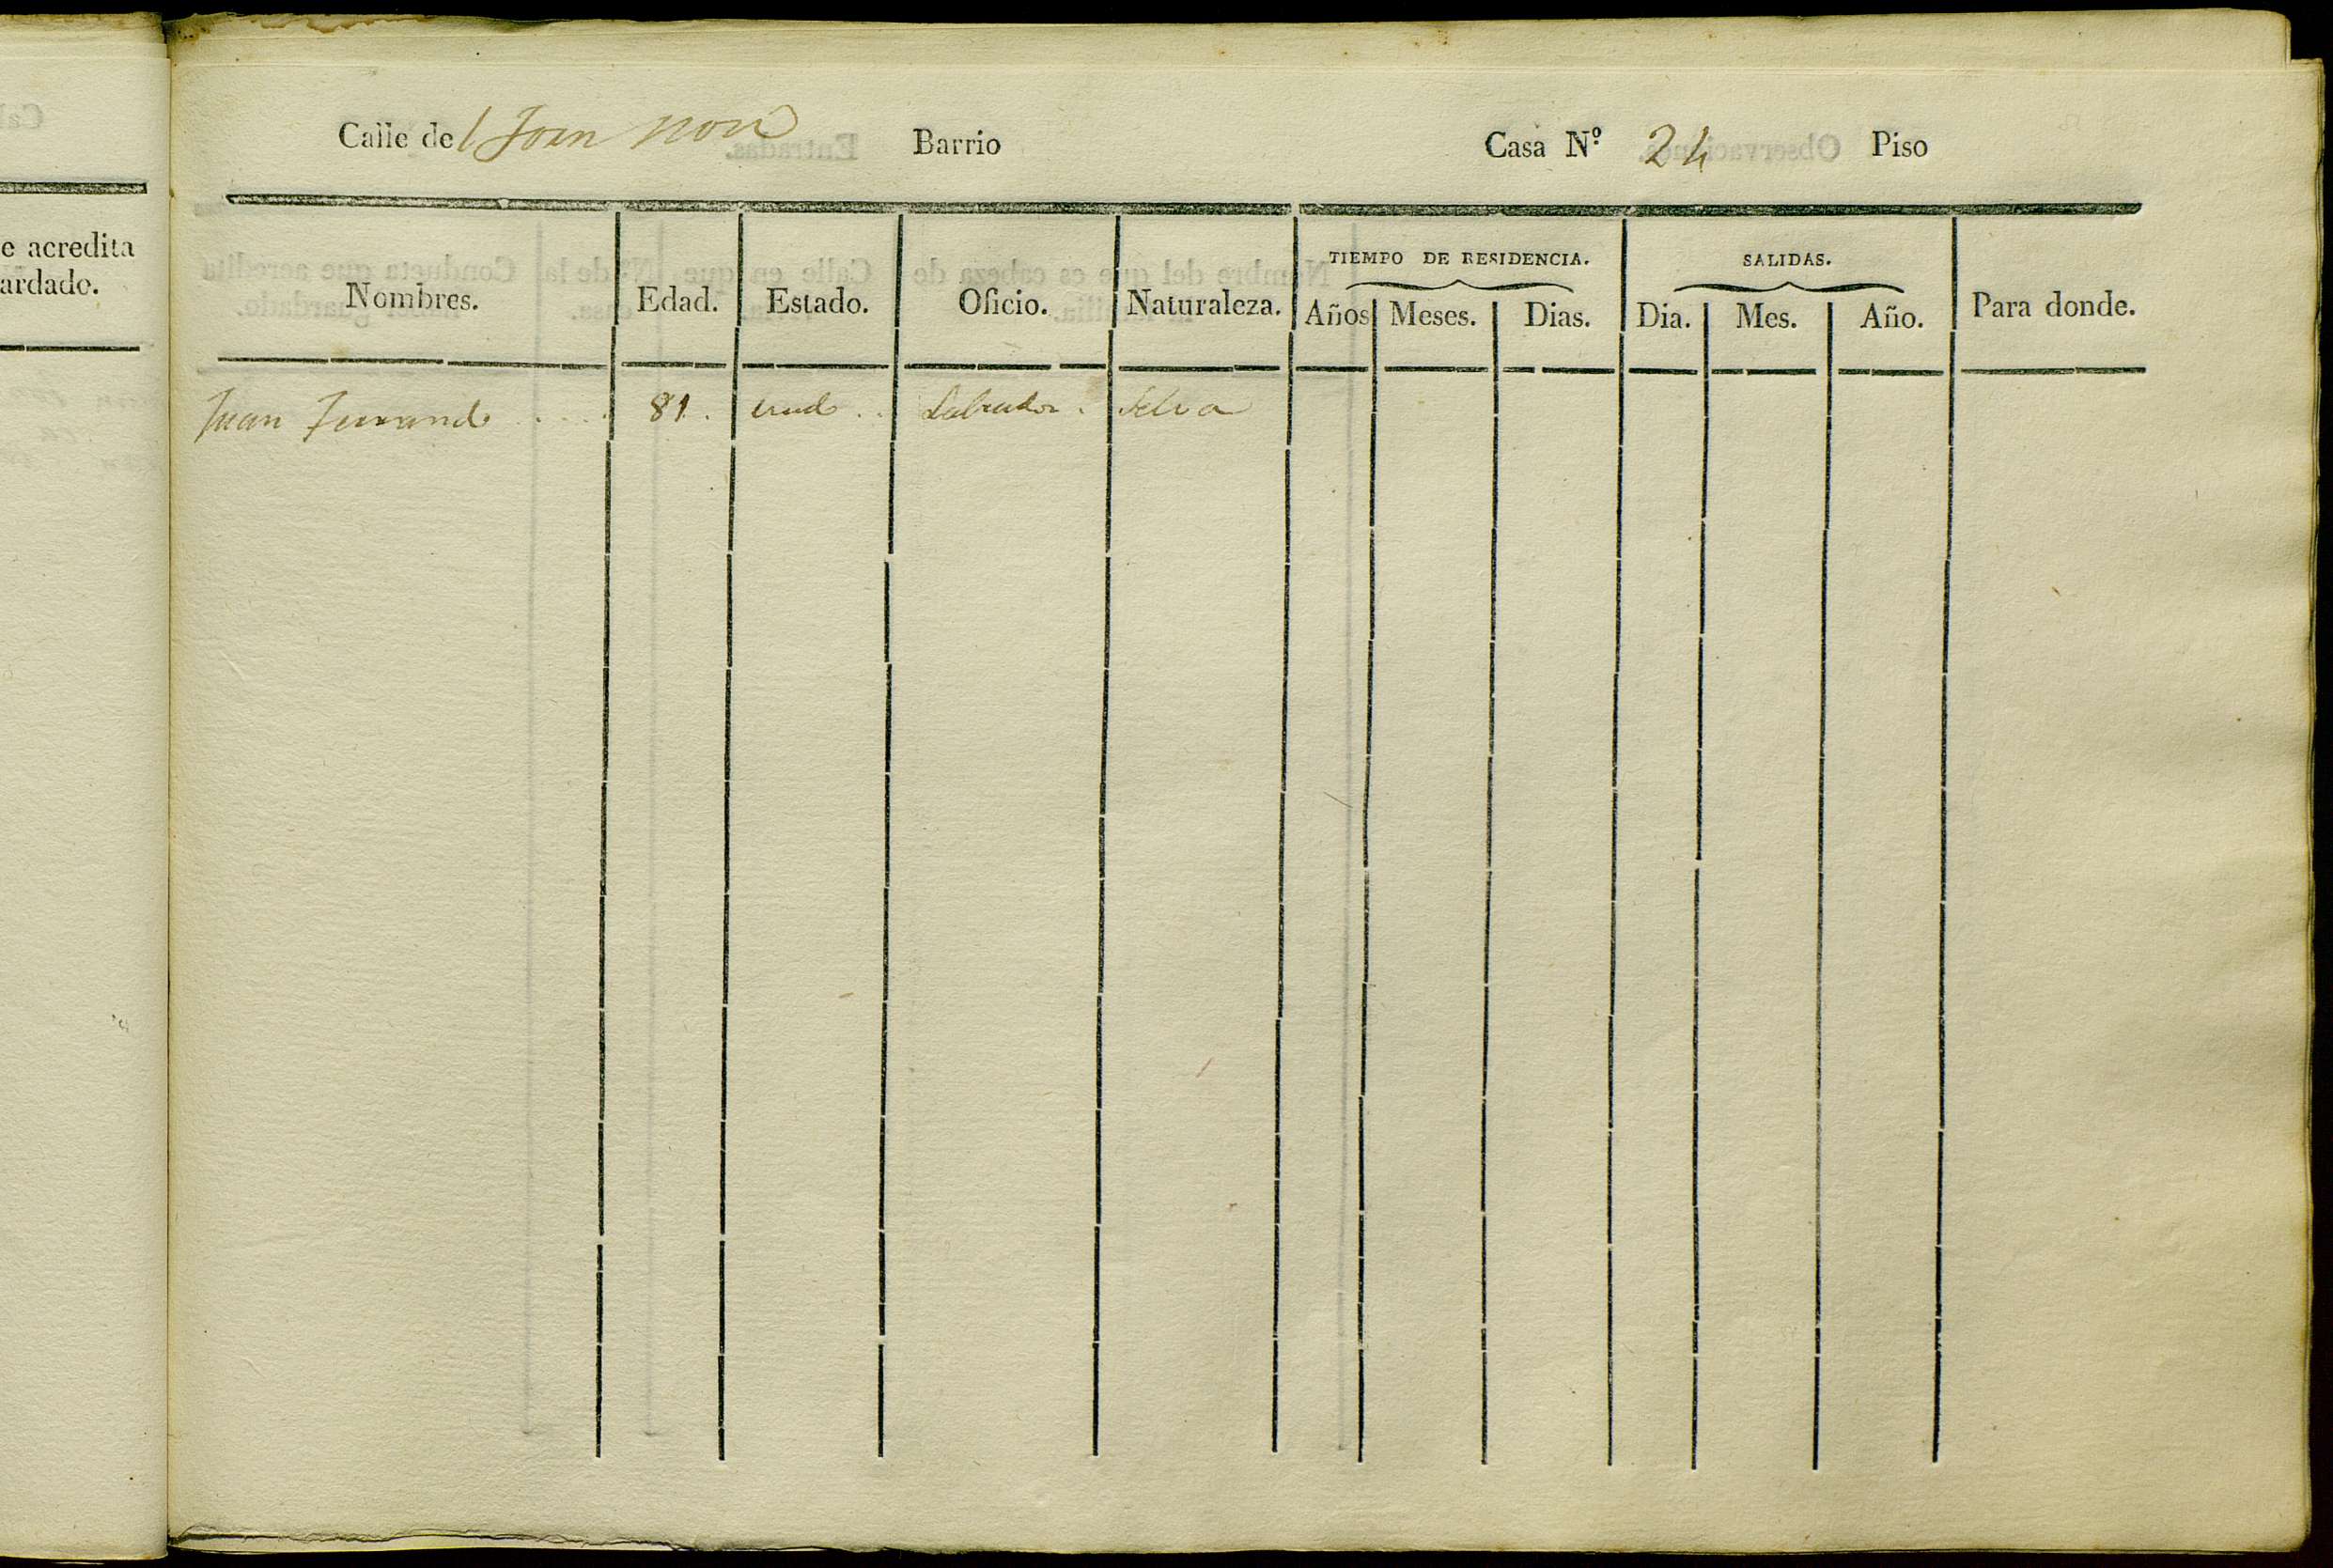 e acredita
ardado.
Calle del Forn nou Barrio Casa N.º 24 Piso
Nombres. Edad. Estado. Oficio. Naturaleza. TIEMPO DE RESIDENCIA. Años Meses. Dias. SALIDAS. Dia. Mes. Año. Para donde.
Juan Ferrand 81. viud Labrador. Selva